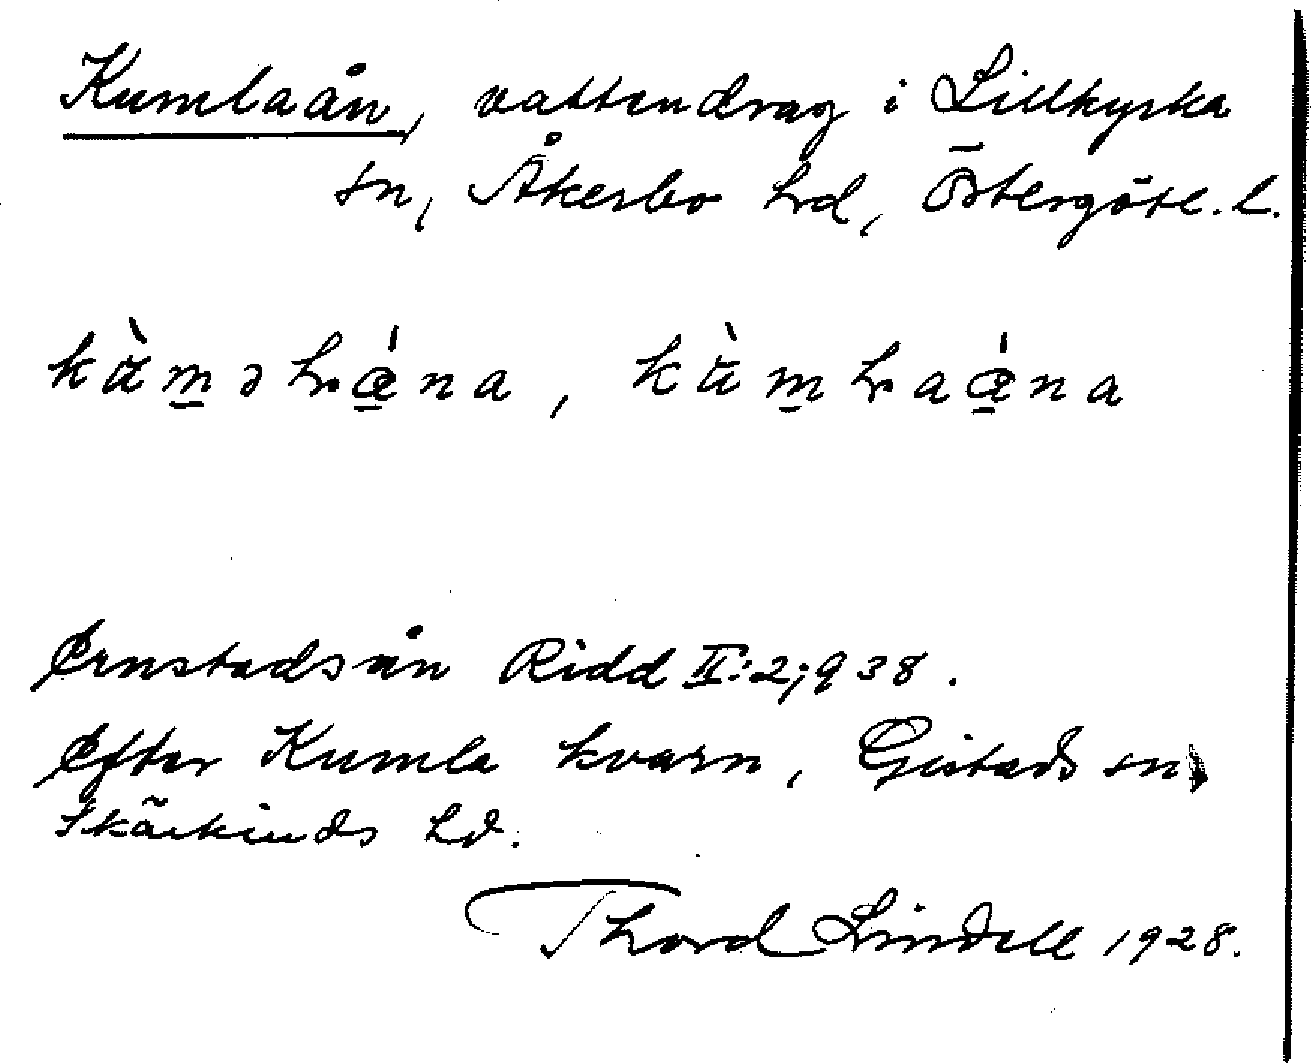 Kumlaån, vattendrag i Lillkyrka
sn, Åkerbo hrd, Östergötl. l.
Ørnstadsån Ridd II:2; 938.
Efter Kumla kvarn, Gistads sn,
Skärkinds hd.
Thord Lindell 1928.